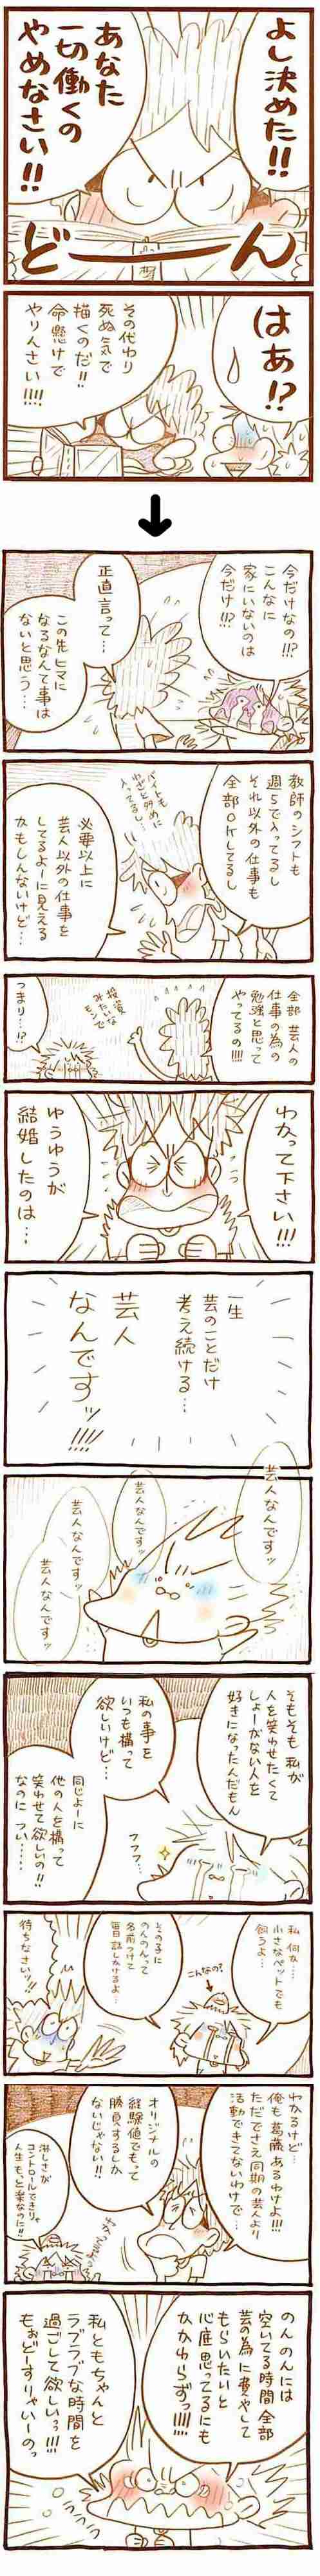 よし決めた!!
あなた
一切働くの
やめなさい!!
どーん
はあ!?
その代わり
死ぬ気で
描くのだ!!
命懸けで
やりんさい!!!!
今だけなの!!?
こんなに
家にいないのは
今だけ!!?
正直言って…
この先ヒマに
なるなんて事は
ないと思う…
教師のシフトも
週5で入ってるし
それ以外の仕事も
全部OKしてるし
バイトも
わざと多めに
入ってるし…
必要以上に
芸人以外の仕事を
してるよーに見える
かもしんないけど…
全部芸人の
仕事の為の
勉強と思って
やってるの!!!!
投資
みたいな
もんで
つまり…!?
わかって下さい!!!
ゆうゆうが
結婚したのは…
一生
芸のことだけ
考え続ける…
芸人
なんですッ!!!!
芸人なんですッ
芸人なんですッ
芸人なんですッ
芸人なんですッ
そもそも私が
人を笑わせたくて
しょーがない人を
好きになったんだもん
私の事を
いつも構って
欲しいけど…
同じよーに
他の人を構って
笑わせて欲しいの!!
なのについ……
フフフ…
私何か…
小さなペットでも
飼うよ…
こんなの?
その子に
のんのんって
名前つけて
毎日話しかけるよ…
待ちなさいッ!!
わかるけど…
俺も葛藤あるわけよ!!!
ただでさえ同期の芸人より
活動できてないわけで…
オリジナルの
経験値でもって
勝負するしか
ないじゃない!!
淋しさが
コントロールできりゃ
人生もっと楽なのに!!
のんのんには
空いてる時間全部
芸の為に費やして
もらいたいと
心底思ってるにも
かかわらずっ!!!!
私ともちゃんと
ラブラブな時間を
過ごして欲しいっ!!!
もぉどーすりゃいーのっ